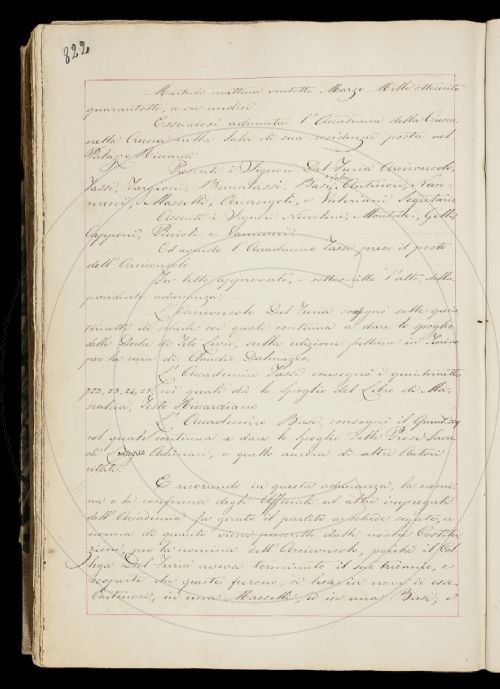 822
Martedì mattina ventotto Marzo Mille ottocento
quarantotto, a ore undici
Essendosi adunata l'Accademia della Crusca
nella sala di sua residenza posta nel
Palazzo Riccardi
Presenti i Signori Del Furia Arciconsolo,
Tassi, Targioni, Bencini, Basi, Antinori, Nan-
nucci, Masselli, Arcangeli, e Valeriani Segretario
Assenti i Signori Niccolini, Montalvi, Gelli,
Capponi, Puccioli e Vannucci
Ed avendo l'Accademico Tassi preso il posto
dell'Arciconsolo
Fu letto approvato, e sottoscritto l'atto della
precedente adunanza.
L'Arciconsolo Del Furia consegnò sette quin
ternetti di schede coi quali continua a dare lo spoglio
delle Deche di Tito Livio, sulla edizione fattane in Torino
per la cura di Claudio Dalmazzo.
L'Accademico Tassi consegnò i quinternetti
22, 23, 24, 25 coi quali dà lo spoglio del Libro di Ma-
scalcia, Testo Riccardiano
L'Accademico Basi, consegnò il
col quale continua a dare lo spoglio delle Prose Sacre
di Adimari, e quello ancora di altri Autori
citati.
E ricorrendo in questa adunanza, la nomi-
na o la conferma degli Uffiziali ed altri impiegati
dell'Accademia fu girato il partito a schede segrete, a
norma di quanto viene prescritto dalle nostre Costitu-
zioni, per la nomina dell'Arciconsolo, perché il Col-
lega Del Furia aveva terminato il suo triennio, e
scoperte che queste furono, si lesse in nove di esse
Antinori, in una Masselli, ed in una Basi, e